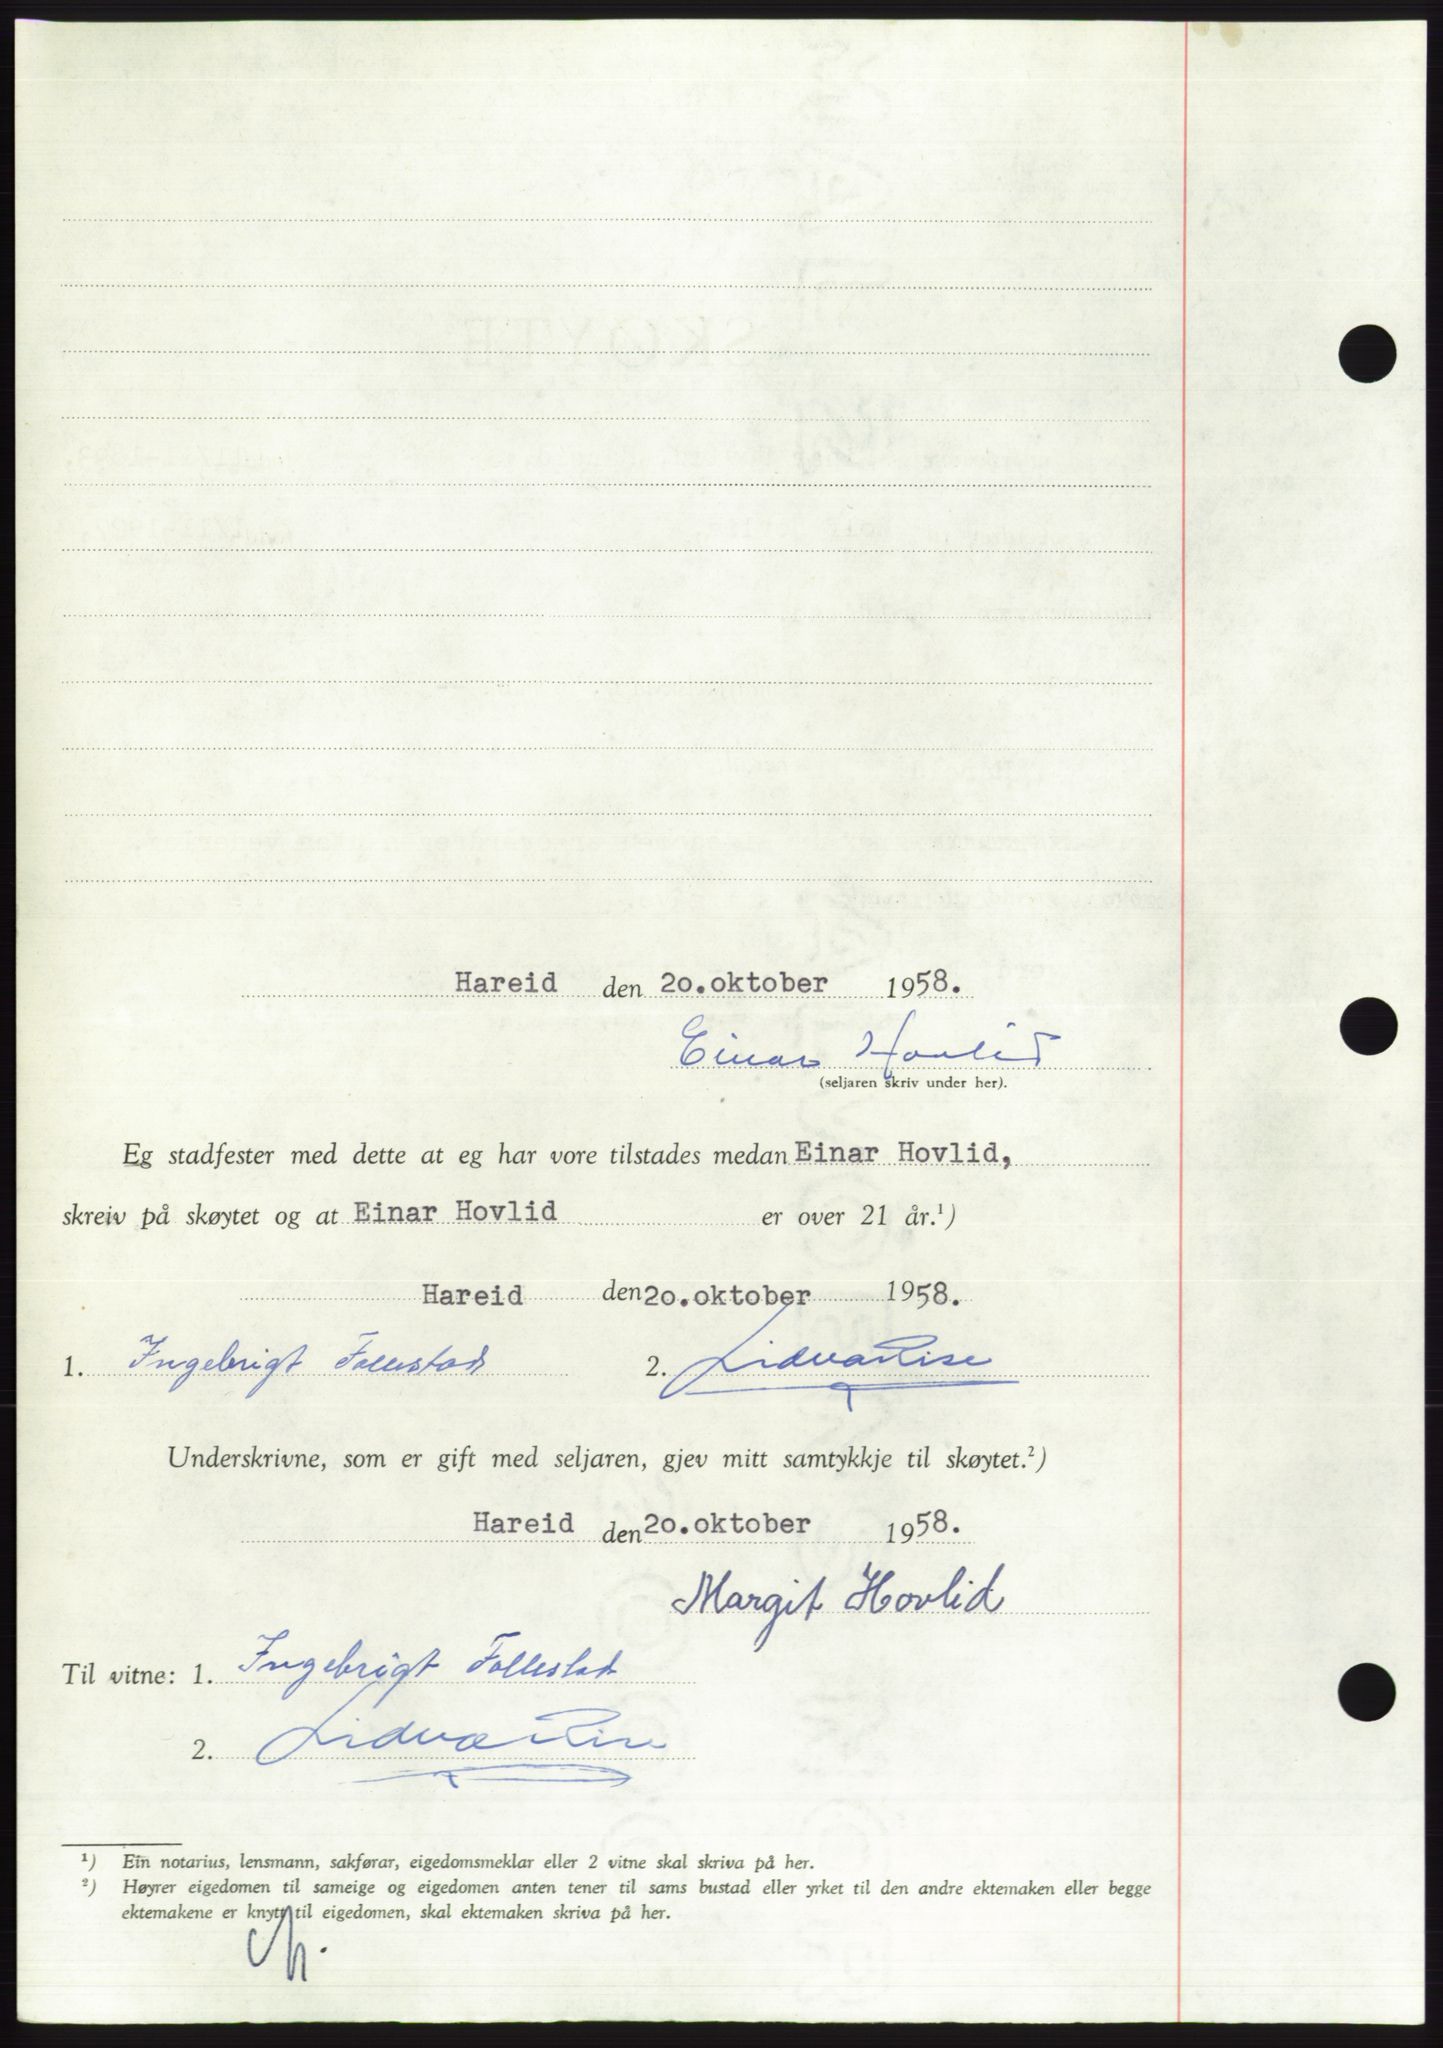 Hareid den 20.oktober 1958.
Einar Hovlid
(seljaren skriv under her).
Eg stadfester med dette at eg har vore tilstades medan Einar Hovlid,
skreiv på skøytet og at Einar Hovlid er over 21 år.¹)
Hareid den 20.oktober 1958.
1. Ingebrigt Follestad 2. Lidvar Rise
Underskrivne, som er gift med seljaren, gjev mitt samtykkje til skøytet.²)
Hareid den 20.oktober 1958.
Margit Hovlid
Til vitne: 1. Ingebrigt Follestad
2. Lidvar Rise
¹) Ein notarius, lensmann, sakførar, eigedomsmeklar eller 2 vitne skal skriva på her.
²) Høyrer eigedomen til sameige og eigedomen anten tener til sams bustad eller yrket til den andre ektemaken eller begge
ektemakene er knytt til eigedomen, skal ektemaken skriva på her.